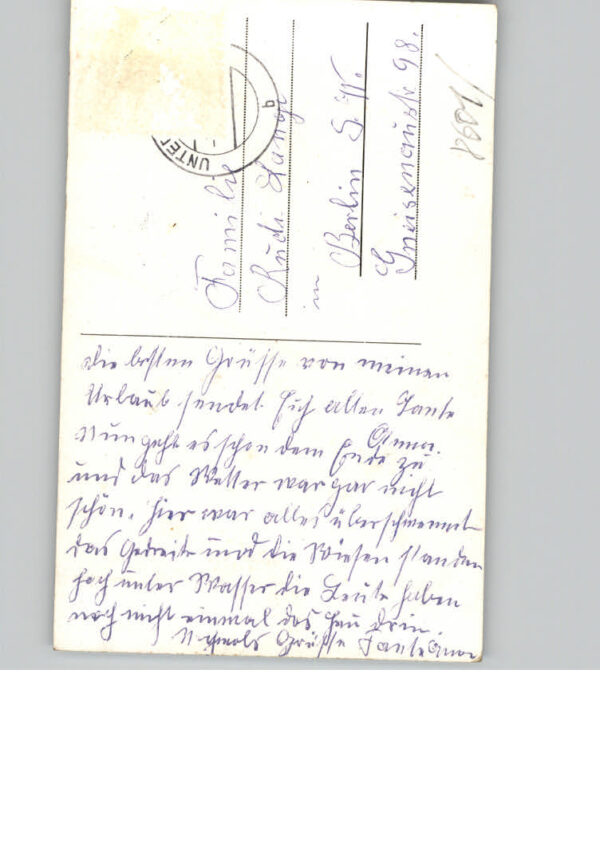 UNTER
b
Familie
Rudi Lange
in Berlin S.W.
Gneisenaustr 98.
die besten Grüsse von meinen
Urlaub sendet Euch allen Tante
Anna.
Nun geht es schon dem Ende zu
und das Wetter war gar nicht
schön. hier war alles überschwemmt
das Gedreide und die Wiesen standen
hoch unter Wasser die Leute haben
noch nicht einmal das Heu drin.
Nochmals Grüsse Tante Anna